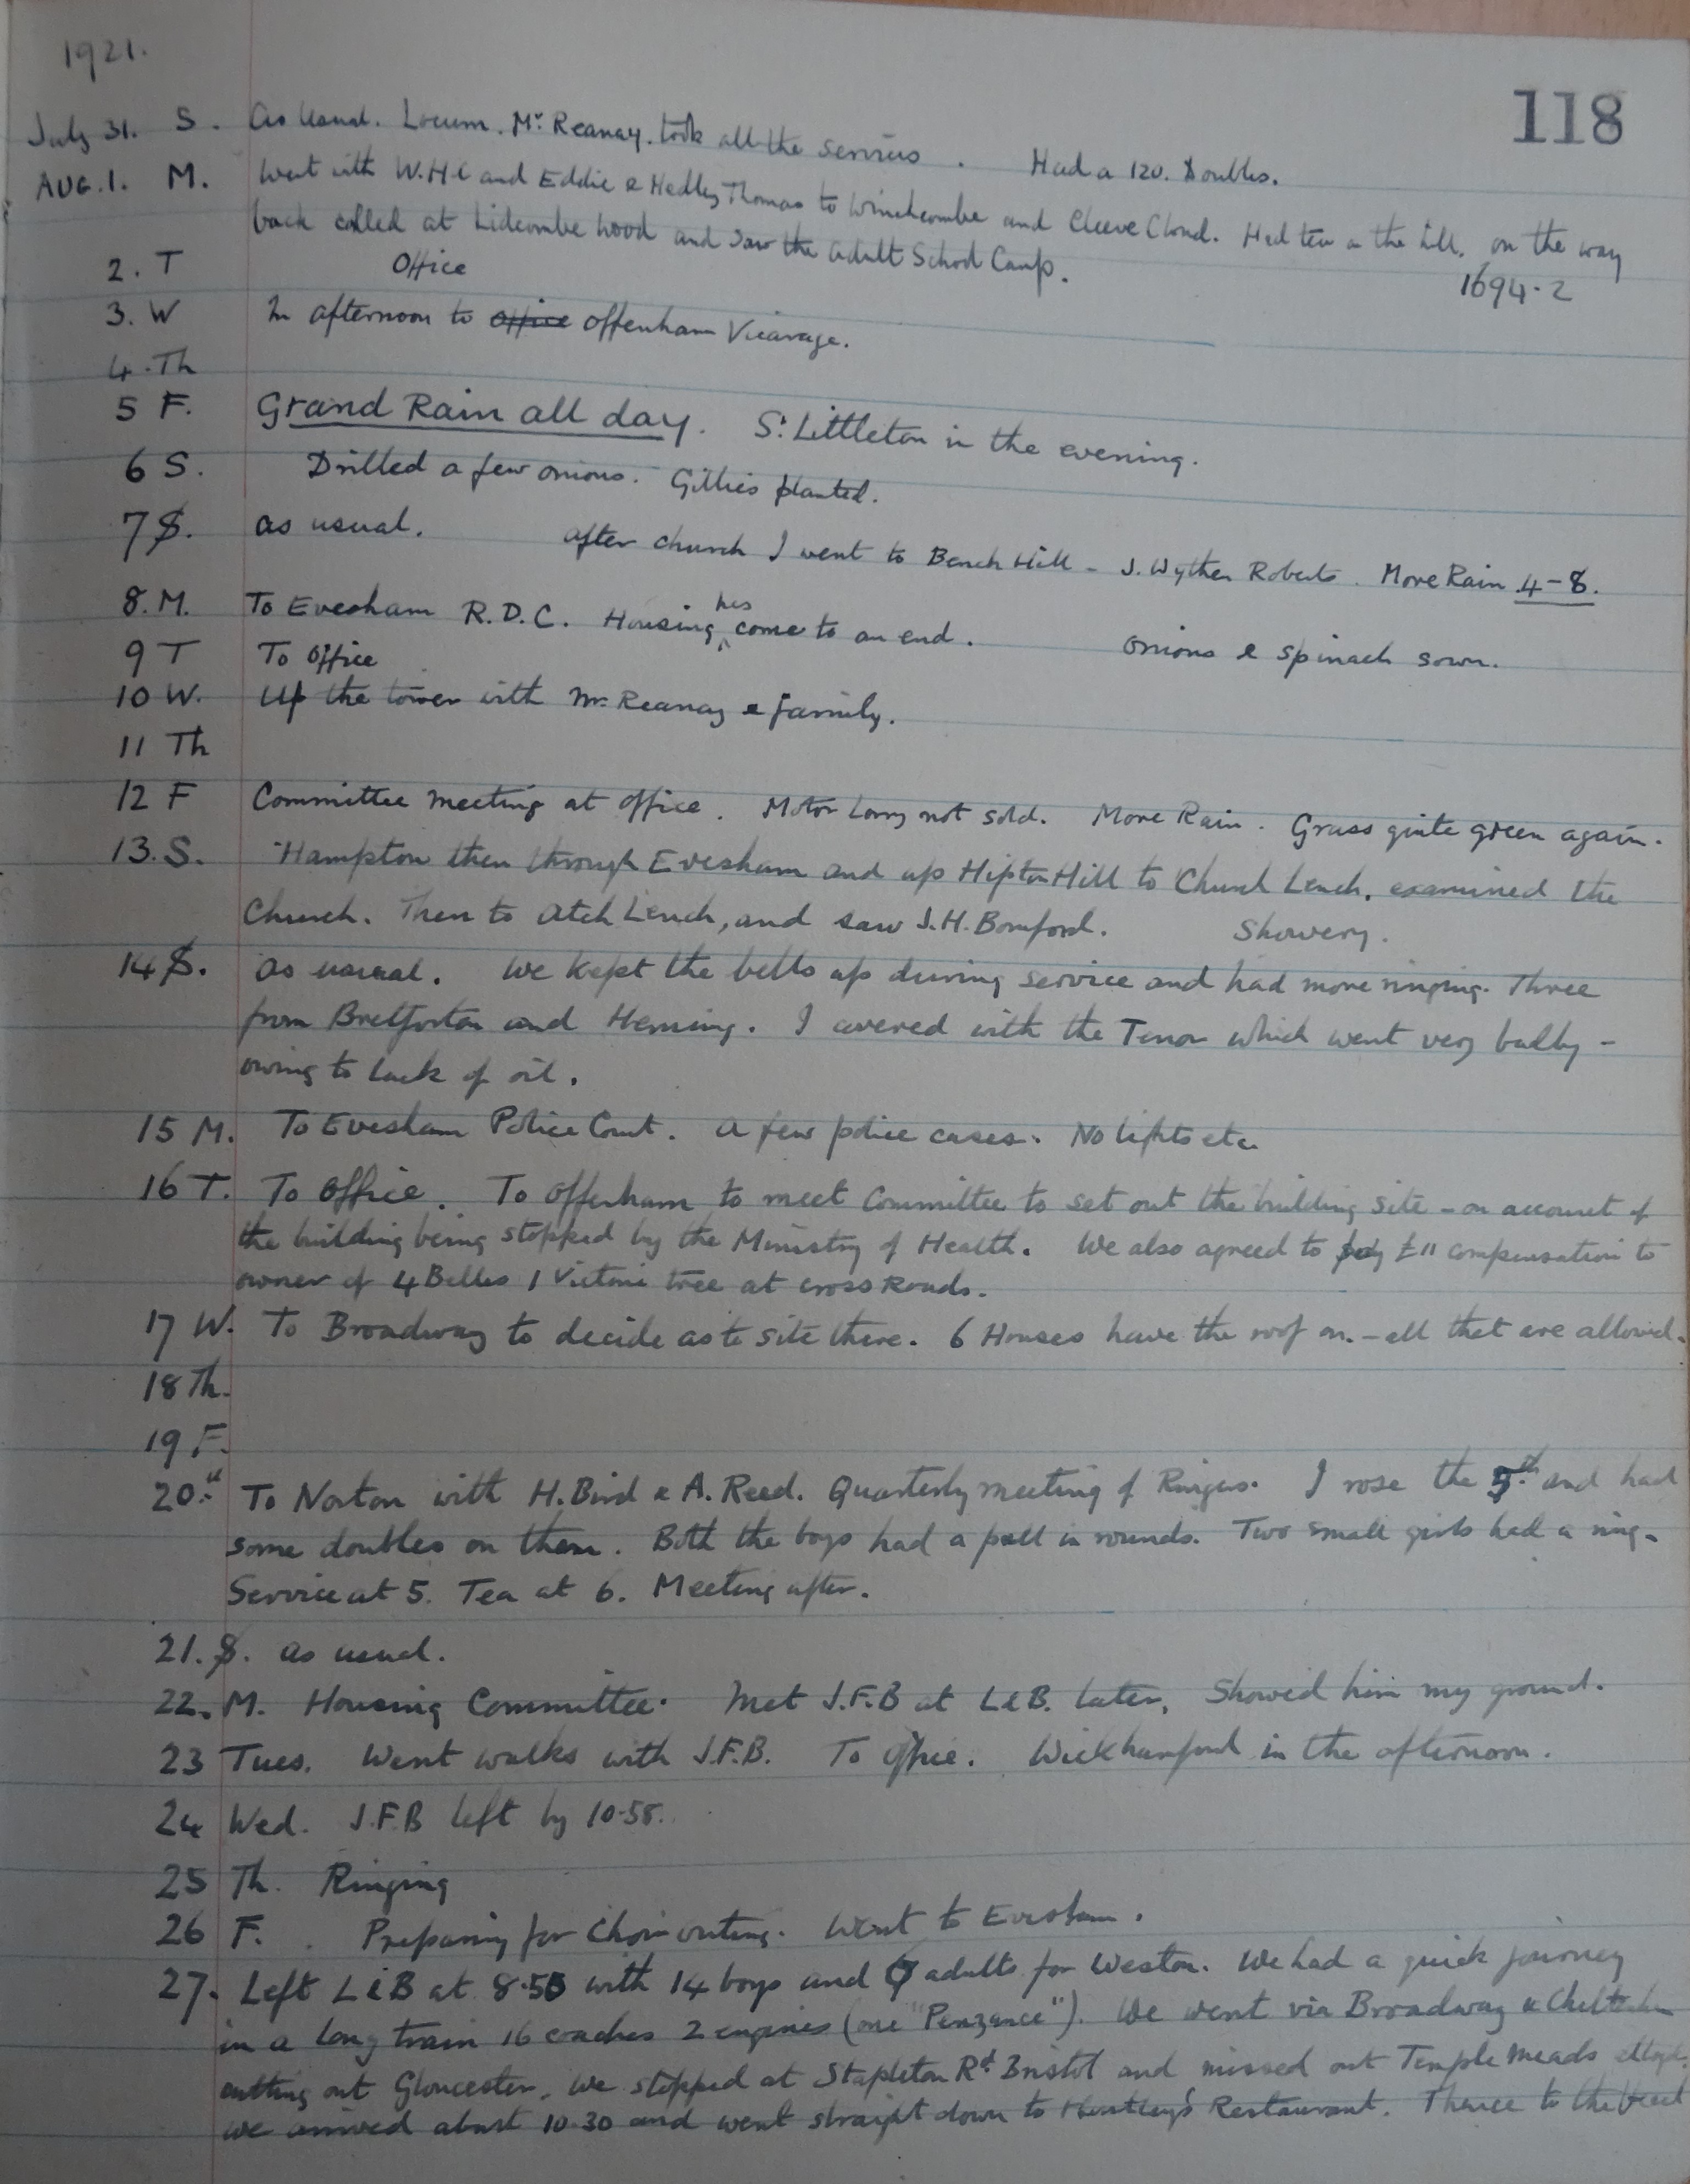 1921.
118
July 31. S. As Usual. Locum. Mr. Reanay. took all the services. Had a 120. Doubles.
AUG. 1. M. Went with W.H.C and Eddie & Hedley Thomas to Winchcombe and Cleeve Cloud. Had tea on the hill. on the way
back called at Lidcombe Wood and saw the Adult School Camp.
1694.2
2. T Office
3. W In afternoon to Office Offenham Vicarage.
4. Th
5 F. Grand Rain all day. S. Littleton in the evening.
6 S. Drilled a few onions. Gillies planted.
7 S. as usual. after church I went to Bench Hill - J. Wyther Roberts. More Rain 4-8.
8. M. To Evesham R.D.C. Housing has come to an end. Onions & spinach sown.
9 T To Office
10 W. Up the tower with Mr. Reanay & family.
11 Th
12 F Committee meeting at office. Motor Lorry not sold. More Rain. Grass quite green again.
13. S. Hampton then through Evesham and up Hipton Hill to Church Lench, examined the
Church. Then to Atch Lench, and saw J.H. Bomford. Showery.
14 S. As usual. We kept the bells up during service and had more ringing. Three
from Bretforton and Heming. I covered with the Tenor which went very badly -
owing to lack of oil.
15 M. To Evesham Police Court. A few police cases. No lights etc.
16 T. To Office. To Offenham to meet Committee to set out the building site - on account of
the building being stopped by the Ministry of Health. We also agreed to pay £11 compensation to
owner of 4 Belles 1 Victoria tree at cross Roads.
17 W. To Broadway to decide as to site there. 6 Houses have the roof on. - all that are allowed.
18 Th.
19 F.
20. To Norton with H. Bird & A. Reed. Quarterly meeting of Ringers. I rose the 5th and had
some doubles on them. Both the boys had a pull in rounds. Two small girls had a ring.
Service at 5. Tea at 6. Meeting after.
21. S. as usual.
22. M. Housing Committee. Met J.F.B at L&B. later. Showed him my ground.
23 Tues. Went walks with J.F.B. To Office. Wickhamford in the afternoon.
24 Wed. J.F.B left by 10.58.
25 Th. Ringing
26 F. Preparing for Choir outing. Went to Evesham.
27. Left L&B at 8.55 with 14 boys and adults for Weston. We had a quick journey
in a long train 16 coaches 2 engines (one "Penzance"). We went via Broadway & Cheltenham
cutting out Gloucester. We stopped at Stapleton Rd. Bristol and missed out Temple Meads
we arrived about 10.30 and went straight down to Huntley's Restaurant. Thence to the